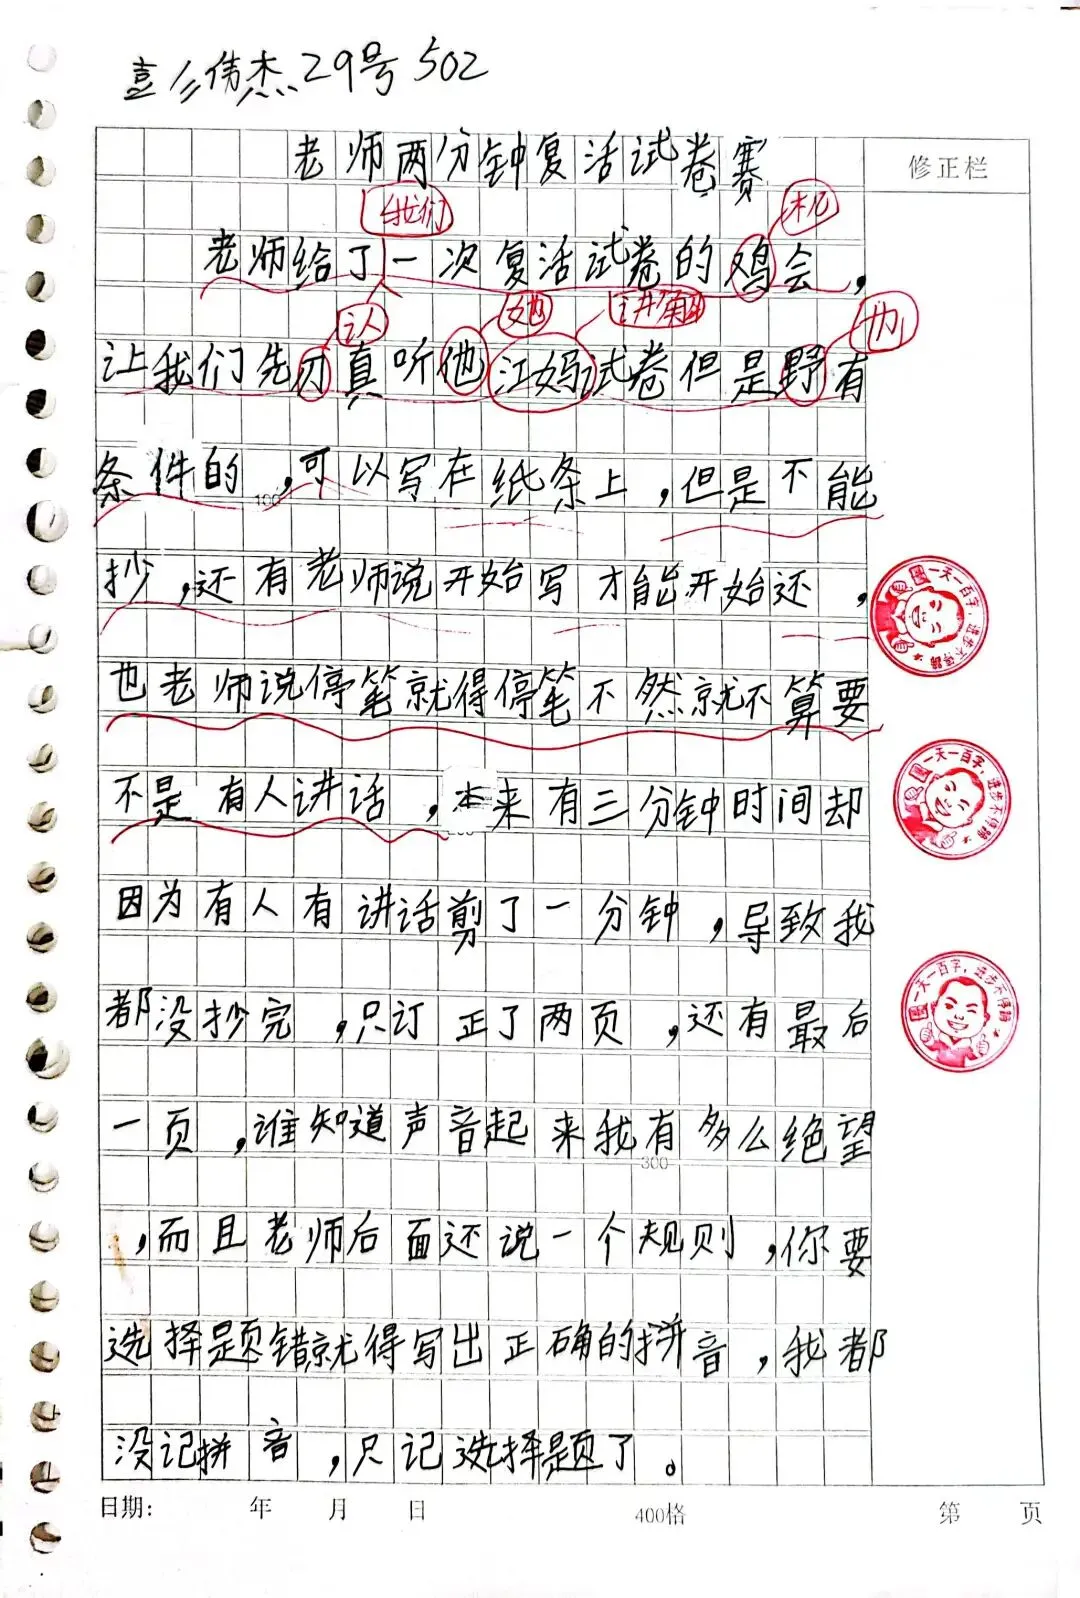 彭伟杰29号 502
老师两分钟复活试卷赛
修正栏
我们
机
老师给了一次复活试卷的鸡会，
认
她
讲解
也
让我们先刃真听他江妈试卷但是野有
条件的，可以写在纸条上，但是不能
100
抄，还有老师说开始写才能开始还，
也老师说停笔就得停笔不然就不算要
不是有人讲话，本来有三分钟时间却
因为有人有讲话剪了一分钟，导致我
都没抄完，只订正了两页，还有最后
一页，谁知道声音起来我有多么绝望
300
，而且老师后面还说一个规则，你要
选择题错就得写出正确的拼音，我都
没记拼音，只记选择题了。
一天一百字，进步不得蹄
一天一百字，进步不得蹄
一天一百字，进步不得蹄
日期： 年 月 日 400格 第 页